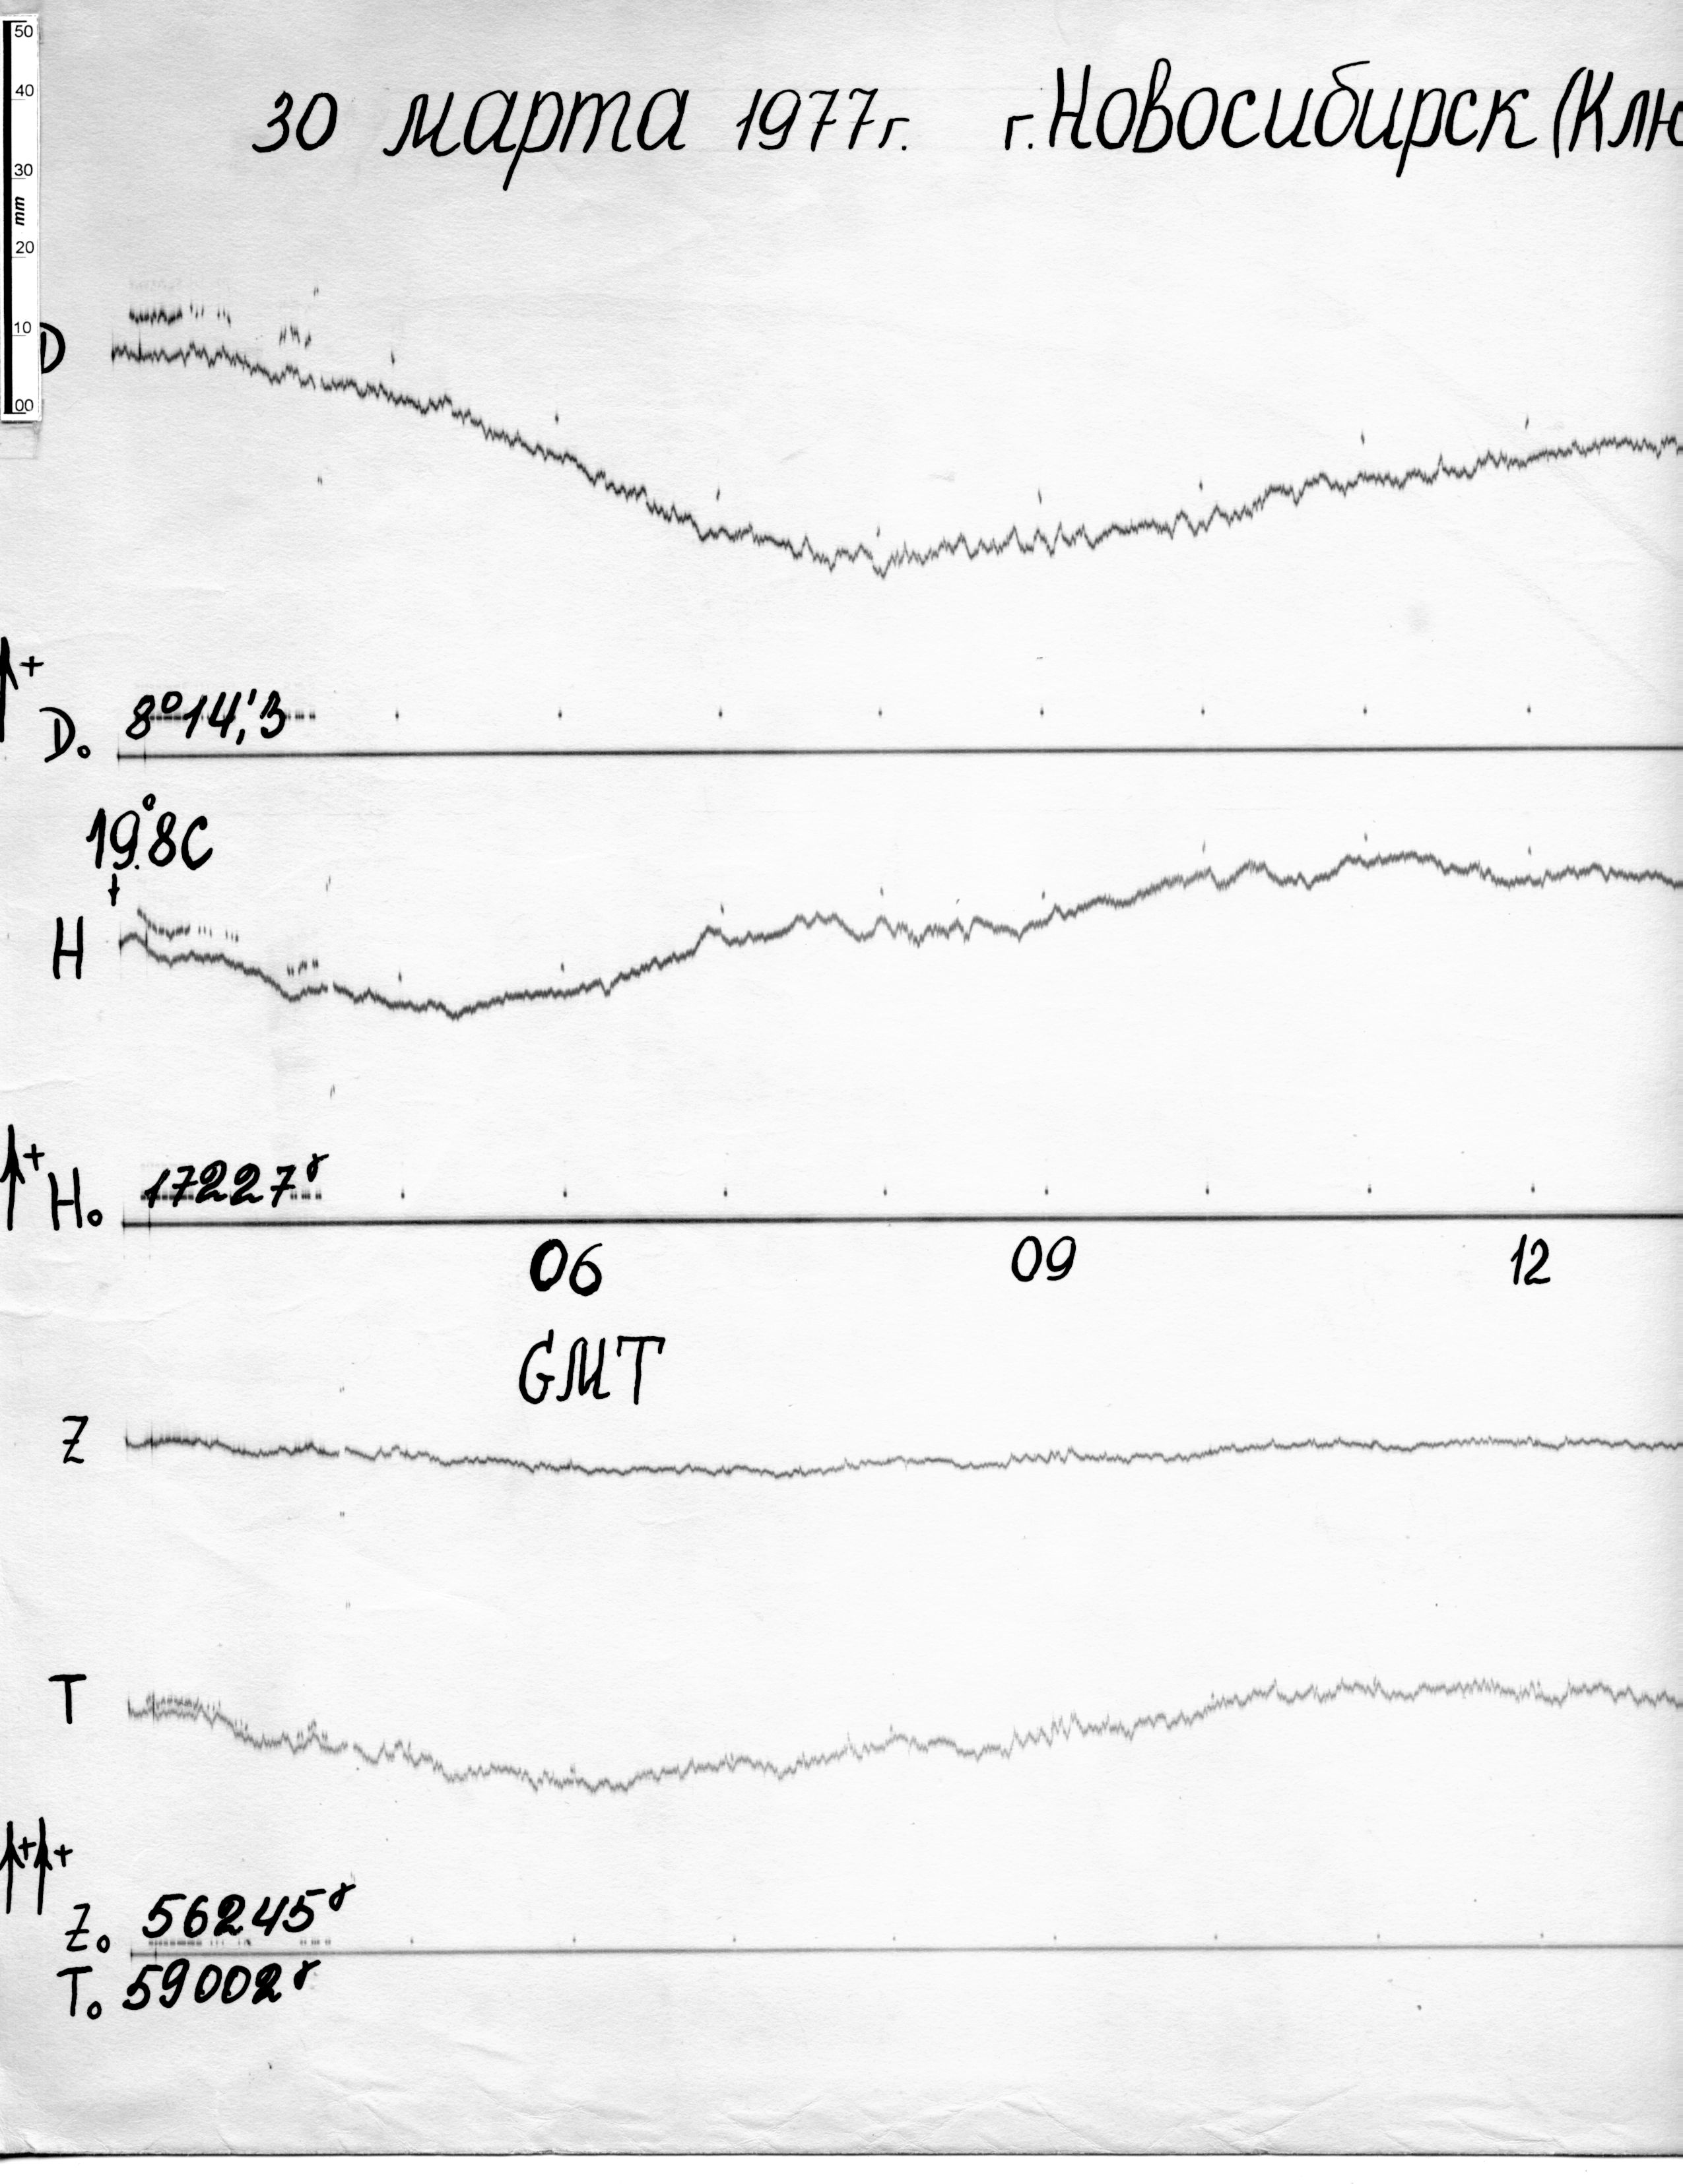 50
40
30
mm
20
10
00
30 марта 1977г. г. Новосибирск (Клю
D
+
D₀ 8°14,'3
19°.8C
H
+
H₀ 17227γ
06 09 12
GMT
Z
T
+ +
Z₀ 56245γ
T₀ 59002γ